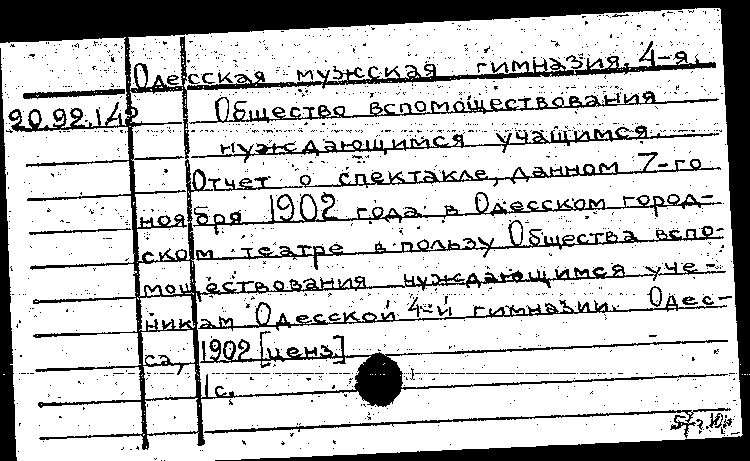 Одесская мужская гимназия, 4-я.
20.92.142 Общество вспомоществования
нуждающимся учащимся.
Отчет о спектакле, данном 7-го
ноября 1902 года в Одесском город-
ском театре в пользу Общества вспо-
моществования нуждающимся уче-
никам Одесской 4-й гимназии. Одес-
са, 1902 [ценз.]
1 с.